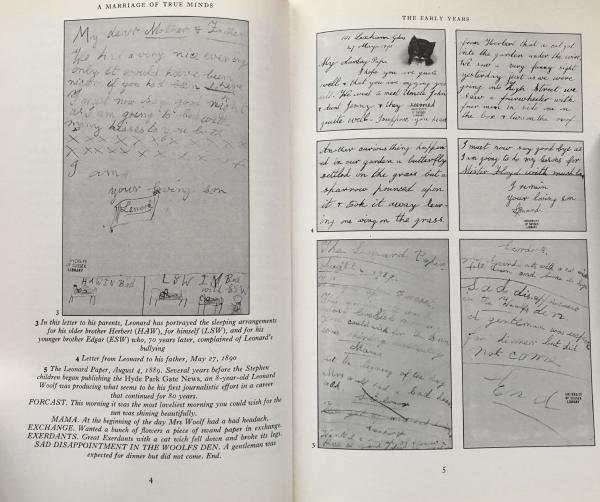 A MARRIAGE OF TRUE MINDS
My dear Mother & Father
We had a very nice evening
only it would have been
nicer if you had been there
I must now say good night
as I am going to bed with
many kisses to you both
X X X X X X X X X X
I am
your loving son
Lenard
UNIVERSITY
OF SUSSEX
LIBRARY
HAW IN Bed
LSW IN Bed
3
3 In this letter to his parents, Leonard has portrayed the sleeping arrangements
for his older brother Herbert (HAW), for himself (LSW), and for his
younger brother Edgar (ESW) who, 70 years later, complained of Leonard's
bullying
4 Letter from Leonard to his father, May 27, 1890
5 The Leonard Paper, August 4, 1889. Several years before the Stephen
children began publishing the Hyde Park Gate News, an 8-year-old Leonard
Woolf was producing what seems to be his first journalistic effort in a career
that continued for 80 years.
FORCAST. This morning it was the most loveliest morning you could wish for the
sun was shining beautifully.
MAMA. At the beginning of the day Mrs Woolf had a bad headach.
EXCHANGE. Wanted a bunch of flowers a piece of swand paper in exchange.
EXERDANTS. Great Exerdants with a cat wich fell down and broke its legs.
SAD DISAPPOINTMENT IN THE WOOLFS DEN. A gentleman was
expected for dinner but did not come. End.
4
THE EARLY YEARS
101 Lexham Gdns
27 May 1890
My darling Papa
I hope you are quite
well & that you are enjoying your
self. We went to meet Uncle John
& Aunt Jenny & they seemed
quite well. I suppose you heard
from Herbert that a cat got
into the garden under the wire.
We saw a very funny sight
yesterday just as we were
going into High Street we
saw a fourwheeler with
four men in side one on
the box & two on the roof.
Another curious thing happen
ed in our garden a butterfly
settled on the grass but a
sparrow pounced upon
it & took it away leav
ing one wing on the grass.
4
I must now say good bye as
I am going to do my lessons for
Mister Floyd with much love
I remain
your loving son
Lenard
UNIVERSITY
OF SUSSEX
LIBRARY
The Leonard Paper
August 4 1889.
Mama
At the beginning of the day
Mrs Woolf had a bad head
ach.
5
Great Exerdants with a cat wich
fell down and broke its legs
Sad disappointment
in The Woolfs den
A gentleman was expected
for dinner but did
not come
End
UNIVERSITY
OF SUSSEX
LIBRARY
5